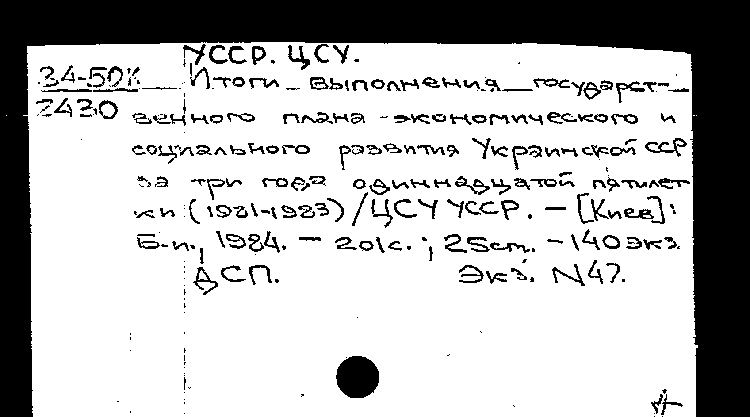 УССР. ЦСУ.
34-50К Итоги выполнения государст-
2430
венного плана экономического и
социального развития Украинской ССР
за три года одиннадцатой пятилет
ки (1981-1983) / ЦСУ УССР. — [Киев]:
Б.и., 1984. — 201с.; 25см. — 140 экз.
ДСП. Экз. N47.